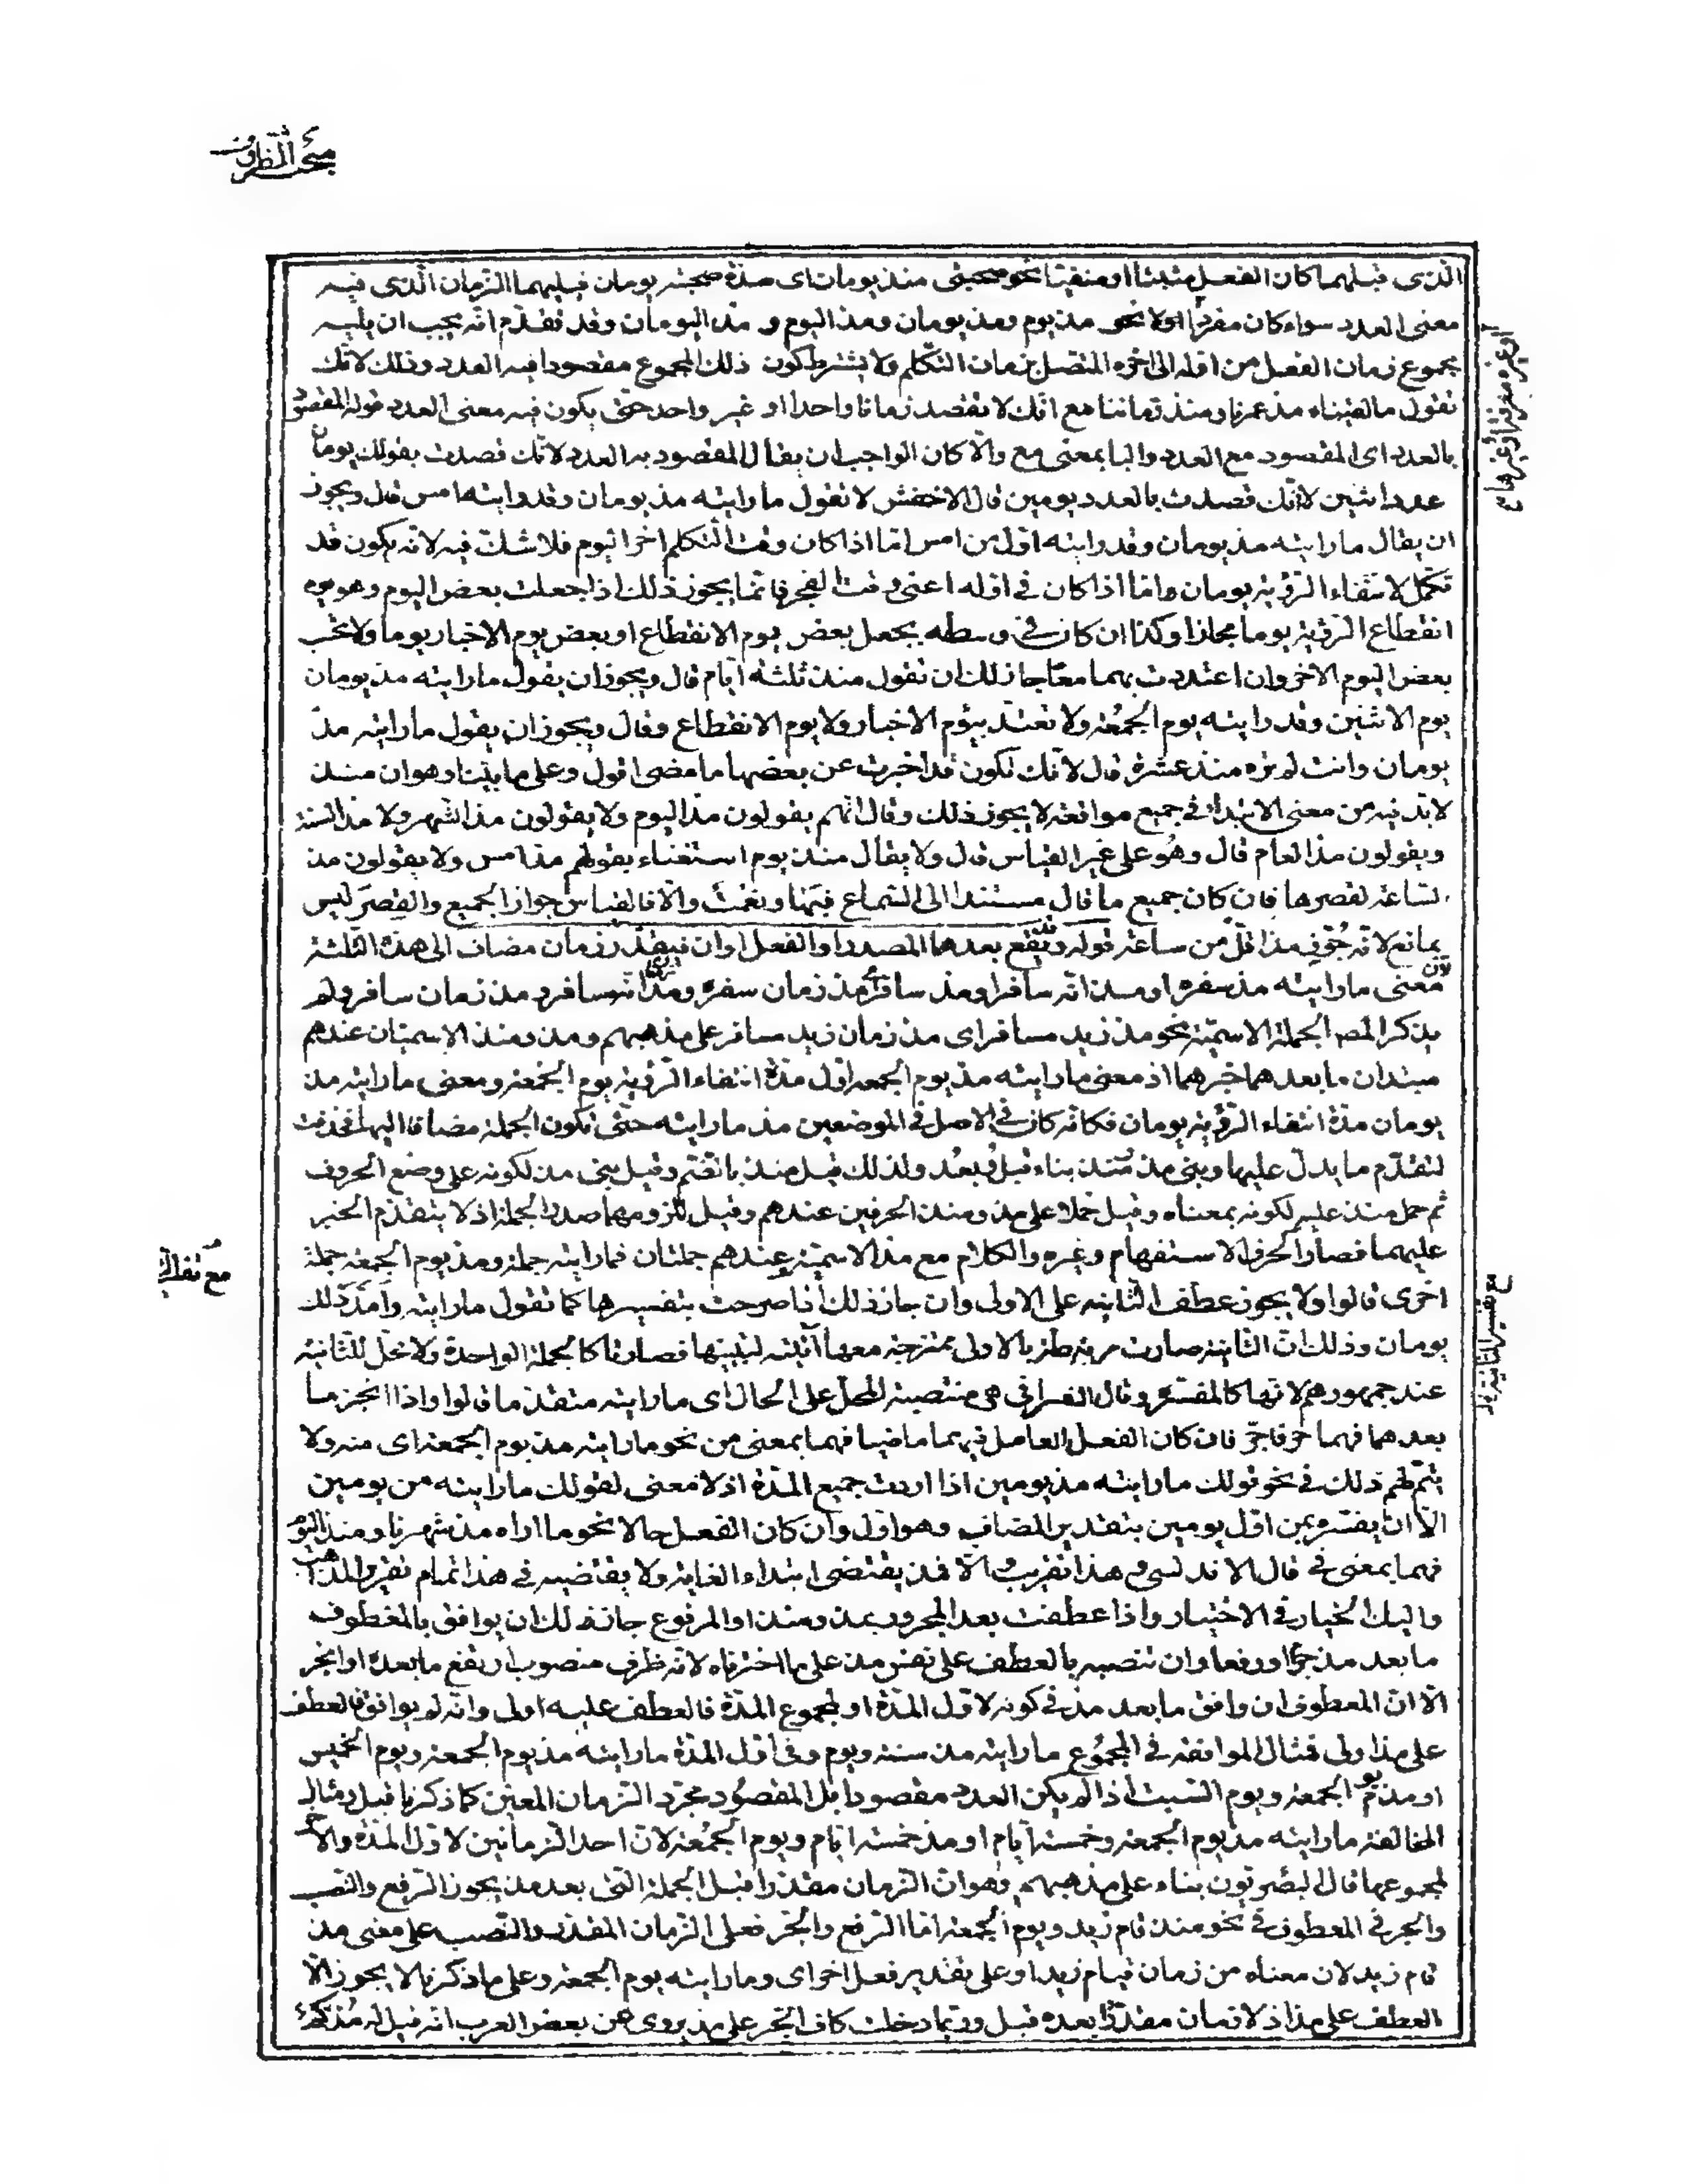 مبحث الظروف
الذی قبلهما کان الفعل مثبتا او منفیا نحو صحبنی منذ یومان ای مدة صحبته یومان فیلیهما الزمان الذی فیه
معنی العدد سواء کان مفردا اولا نحو مذ یوم ومذ یومان ومذ الیوم و مذ الیومان وقد تقدم انه یجب ان یلیه
مجموع زمان الفعل من اوله الی اخره المتصل بزمان التکلم ولا یشترط کون ذلک المجموع مقصودا فیه العدد وذلک لانک
تقول مالقیناه مذ عمرنا ومنذ زماننا مع انک لا تقصد زمانا واحدا او غیر واحد حتی یکون فیه معنی العدد قوله المقصود
بالعدد ای المقصود مع العدد والبا بمعنی مع والا کان الواجب ان یقال المقصود به العدد لانک قصدت بقولک یومان
عددا اثنین لا انک قصدت بالعدد یومین قال الاخفش لا تقول ما رایته مذ یومان وقد رایته امس قال ویجوز
ان یقال ما رایته مذ یومان وقد رایته اول من امس اما اذا کان وقت التکلم اخر الیوم فلا شک فیه لانه یکون قد
تکمل لانتفاء الرؤیة یومان واما اذا کان فی اوله اعنی وقت الفجر فانما یجوز ذلک اذا جعلت بعض الیوم وهو یوم
انقطاع الرؤیة یوما مجازا وکذا ان کان فی وسطه یجعل بعض یوم الانقطاع او بعض یوم الاخبار یوما ولا یحسب
بعض الیوم الاخر وان اعتددت بهما معا جاز لک ان تقول منذ ثلثه ایام قال ویجوز ان یقول ما رایته مذ یومان
یوم الاثنین وقد رایته یوم الجمعة ولا تعتد بیوم الاخبار ولا یوم الانقطاع وقال ویجوز ان یقول ما رایته مذ
یومان وانت لم تره منذ عشرة قال لانک تکون قد اخبرت عن بعضها ما مضی اقول وعلی ما بینا وهو ان منذ
لابد فیه من معنی الابتداء فی جمیع مواقعه لا یجوز ذلک وقال انهم یقولون مذ الیوم ولا یقولون مذ الشهر ولا مذ السنة
ویقولون مذ العام قال وهو علی غیر القیاس قال ولا یقال منذ یوم استغناء بقولهم مذ امس ولا یقولون مذ
الساعة لقصرها فان کان جمیع ما قال مستندا الی السماع فبها ونعمت والا فالقیاس جواز الجمیع والقصر لیس
بمانع لانه جوز مذ اقل من ساعة قوله وقد یقع بعدهما المصدر او الفعل او ان فیقدر زمان مضاف الی هذه الثلثة
لان معنی ما رایته مذ سفره او مذ انه سافر او مذ سافر ای مذ زمان سفره ومذ انه سافر ومذ زمان سافر ولم
یذکر المص الجملة الاسمیة نحو مذ زید مسافر ای مذ زمان زید مسافر علی مذهبهم ومذ ومنذ الاسمیتان عندهم
مبتدان ما بعدهما خبرهما اذ معنی ما رایته مذ یوم الجمعه اول مدة انتفاء الرؤیة یوم الجمعة ومعنی ما رایته مذ
یومان مدة انتفاء الرؤیة یومان فکانه کان فی الاصل فی الموضعین مذ ما رایته حتی تکون الجملة مضافا الیها فحذفت
لتقدم ما یدل علیها وبنی مذ منذ بناء قبل وبعد ولذلک قیل منذ بالضم وقیل بنی مذ لکونه علی وضع الحروف
ثم حمل منذ علیه لکونه بمعناه وقیل حملا علی مذ ومنذ الحرفین عندهم وقیل للزومهما صدر الجملة اذ لا یتقدم الخبر
علیهما فصارا کحرف الاستفهام وغیره والکلام مع مذ الاسمیة عندهم جملتان فما رایته جملة ومذ یوم الجمعة جملة
اخری قالوا ولا یجوز عطف الثانیه علی الاولی وان جاز ذلک اذا صرحت بتفسیرها کما تقول ما رایته وامد ذلک
یومان وذلک ان الثانیة صارت مرتبطة بالاولی ممتزجة معها فصارتا کالجملة الواحدة ولا محل للثانیة
عند جمهورهم لانها کالمفسرة وقال السیرافی هی منتصبة المحل علی الحال ای ما رایته متقدما قالوا واذا انجر ما
بعدهما فهما حرفا جر فان کان الفعل العامل فیهما ماضیا فهما بمعنی من نحو ما رایته مذ یوم الجمعة ای منه ولا
یتم لهم ذلک فی نحو قولک ما رایته مذ یومین اذا اردت جمیع المدة اذ لا معنی لقولک ما رایته من یومین
الا ان یفسروه بمن اول یومین بتقدیر المضاف وهو اول وان کان الفعل حالا نحو ما اراه مذ شهرنا ومنذ الیوم
فهما بمعنی فی قال الاندلسی و هذا تقریب والا فمذ یقتضی ابتداء الغایة ولا یقتضیه فی هذا تمام تقریر المذهب
والیک الخیار فی الاختیار واذا عطفت بعد المجرور بمذ ومنذ او المرفوع جاز لک ان یوافق بالمعطوف
ما بعد مذ جرا ورفعا وان تنصبه بالعطف علی نفس مذ علی ما اخترناه لانه ظرف منصوب ارتفع ما بعده او انجر
الا ان المعطوف ان وافق ما بعد مذ فی کونه لاول المدة او لمجموع المدة فالعطف علیه اولی وان لم یوافق فالعطف
علی مذ اولی فمثال الموافقة فی المجموع ما رایته مذ سنة ویوم وفی اول المدة ما رایته مذ یوم الجمعة ویوم الخمیس
او مذ یوم الجمعة ویوم السبت اذا لم یکن العدد مقصودا بل المقصود مجرد الزمان المعین کما ذکرنا قبل ومثال
المخالفة ما رایته مذ یوم الجمعة وخمسة ایام او مذ خمسة ایام ویوم الجمعة لان احد الزمانین لاول المدة والاخر
لمجموعها قال البصریون بناء علی مذهبهم وهو ان الزمان مقدر قبل الجملة التی بعد مذ یجوز الرفع والنصب
والجر فی المعطوف فی نحو منذ قام زید ویوم الجمعة اما الرفع والجر فعلی الزمان المقدر والنصب علی معنی مذ
قام زید لان معناه من زمان قیام زید او علی تقدیر فعل اخر ای وما رایته یوم الجمعة وعلی ما ذکرنا لا یجوز الا
العطف علی مذ اذ لا زمان مقدرا بعده قبل وربما دخلت کاف الجر علی مذ یروی عن بعض العرب انه قیل له